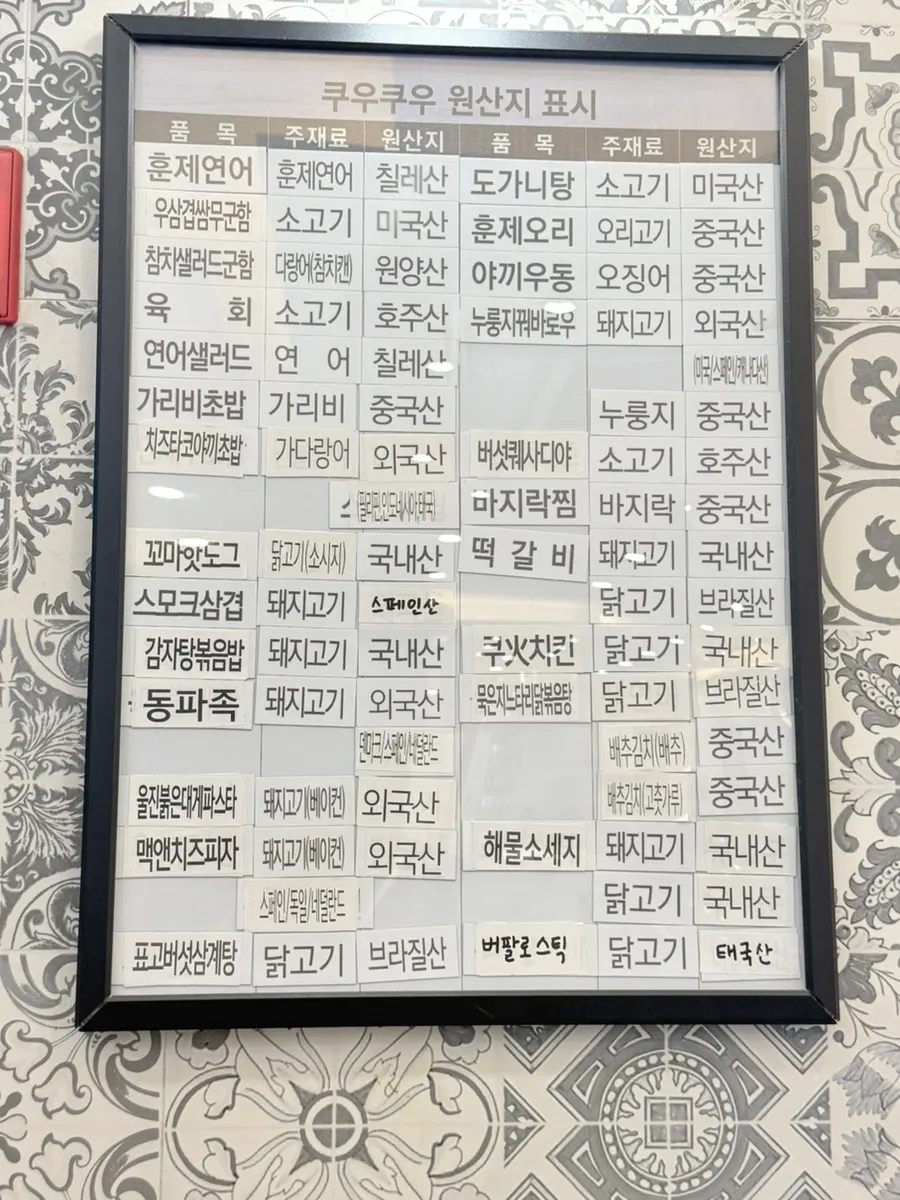 쿠우쿠우 원산지 표시
품 목 주재료 원산지 품 목 주재료 원산지
훈제연어 훈제연어 칠레산 도가니탕 소고기 미국산
우삼겹쌈무군함 소고기 미국산 훈제오리 오리고기 중국산
참치샐러드군함 다랑어(참치캔) 원양산 야끼우동 오징어 중국산
육 회 소고기 호주산 누룽지꿔바로우 돼지고기 외국산
연어샐러드 연 어 칠레산 (미국/스페인/캐나다산)
가리비초밥 가리비 중국산 누룽지 중국산
치즈타코야끼초밥 가다랑어 외국산 버섯퀘사디야 소고기 호주산
(필리핀,인도네시아,태국) 바지락찜 바지락 중국산
꼬마핫도그 닭고기(소시지) 국내산 떡 갈 비 돼지고기 국내산
스모크삼겹 돼지고기 스페인산 닭고기 브라질산
감자탕볶음밥 돼지고기 국내산 쿠火치킨 닭고기 국내산
동파족 돼지고기 외국산 묵은지느타리닭볶음탕 닭고기 브라질산
덴마크/스페인/네덜란드 배추김치(배추) 중국산
울진붉은대게파스타 돼지고기(베이컨) 외국산 배추김치(고춧가루) 중국산
맥앤치즈피자 돼지고기(베이컨) 외국산 해물소세지 돼지고기 국내산
스페인/독일/네덜란드 닭고기 국내산
표고버섯삼계탕 닭고기 브라질산 버팔로스틱 닭고기 태국산